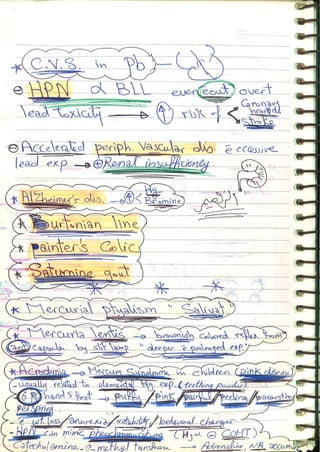 * C.V.S. in Pb
⊖ HPN α BLL even e out overt
lead toxicity → ↑ risk of < Coronary
Stroke
⊖ Accelerated periph. Vascular dis. ē eccessive
lead exp. → ⊕ Renal insufficiency.
* Alzheimer's dis. → ↑ < Hg
Bromine
الزهيمر
* Burtonian line
* Painter's Colic
* Saturnine gout
* * *
* Mercurial ptyalism " Salivat "
* Mercuria lentis → brownish colored reflex from
ant capsule by slit lamp " deeper ē prolonged exp."
* Acrodynia → Mercury Syndrome in children (pink disease)
- usually related to elemental Hg. exp. (teething powder)
hands & feet → puffy / pink / painful / peeling / parasthesia
perspring
- ē wt. loss / anorexia / irritability / behavioral changes.
- HPN can mimic pheochromocytoma ( Hg → ⊖ COMT )
Catecholamine-O-methyl transferase → Adrenaline, N/A accumul